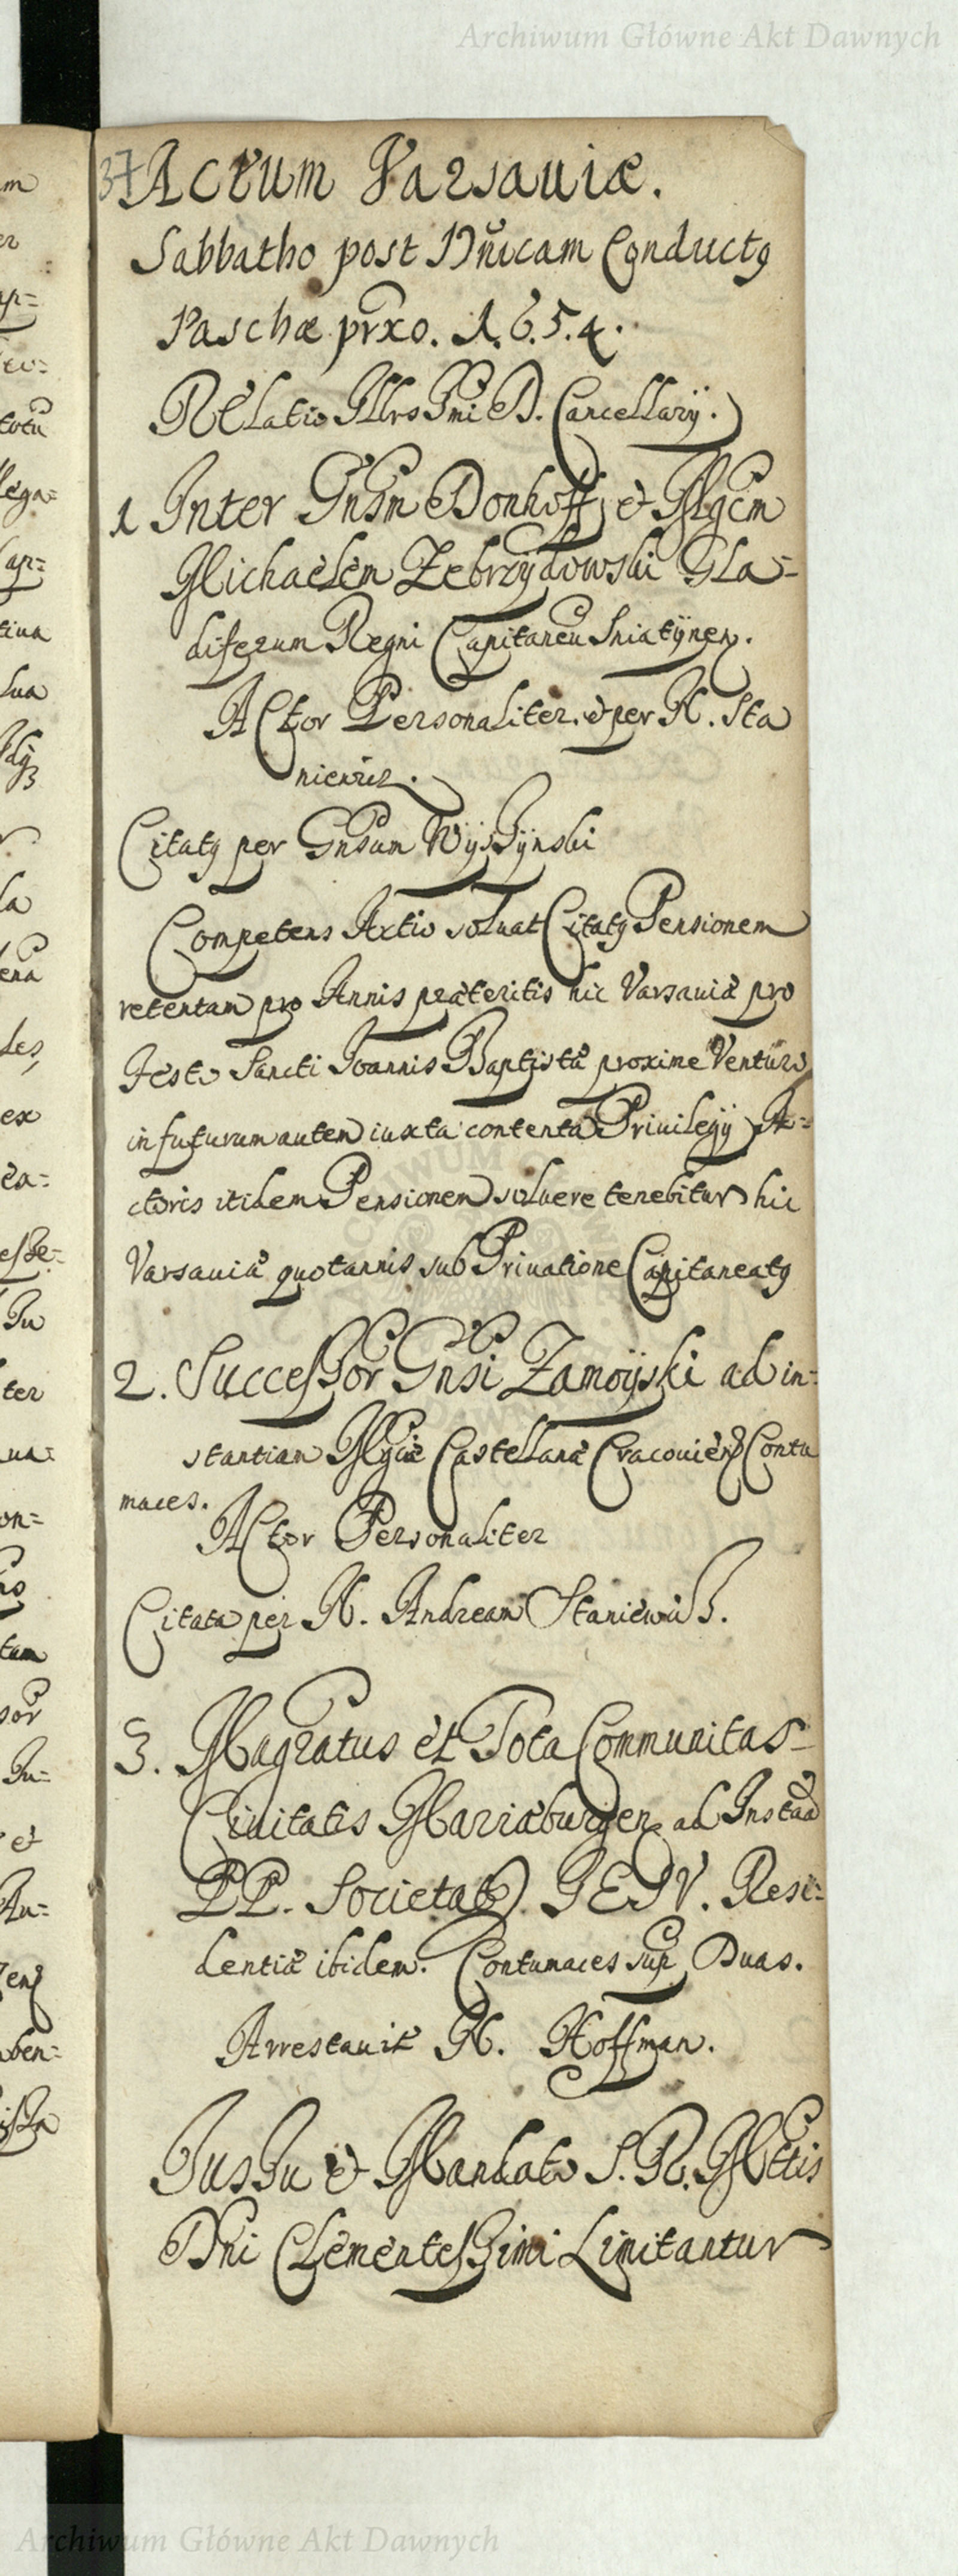 Archiwum Główne Akt Dawnych
37 Actum Varsaviæ.
Sabbatho post Dn̄icam Conductꝯ
Paschæ prxo. 1.6.5.4.
Relatio Illrs Gmi D. Cancellarÿ.
1 Inter Gnsm Donhoff, et Mgcm
Michaelem Zebrzydowski Gla-
diferum Regni Capitaneu Sniatÿnen.
Actor Personaliter. et per N. Sta
niewicz.
Citatꝯ per Gnsum Wÿszÿnski
Competens Actio solvat Citatꝯ Pensionem
retentam pro Annis præteritis hic Varsaviæ pro
Festo Sancti Joannis Baptistæ proxime Venturo
in futurum autem iuxta contenta Privilegÿ A=
ctoris itidem Pensionem soluere tenebitur hic
Varsaviæ quotannis sub Privatione Capitaneatꝯ
2. Successor Gnsi Zamoÿski ad in=
stantiam Mgcæ Castellanæ Cracovien Contu
maces.
Actor Personaliter
Citata per N. Andream Staniewicz.
3. Magratus et Tota Communitas
Civitatis Mariæburgen ad Instaã
PP. Societatis JESV. Resi=
dentiæ ibidem. Contumaces sup Duas.
Arrestavit N. Hoffman.
Jussu et Mandato S. R. Mttis
Dni Clementessimi Limitantur
m
er
ap=
totu
lega=
cap=
tiua
sua
la
ena
des,
ex
ea=
esse=
Ju
ter
ua=
on=
tam
sor
Ju=
et
Au=
ben=
Archiwum Główne Akt Dawnych